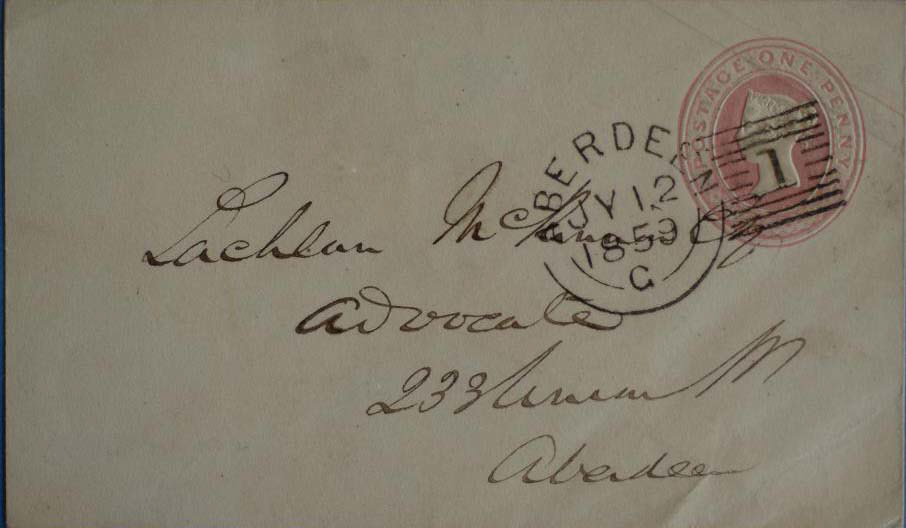 POSTAGE ONE PENNY
1
ABERDEEN
JY 12
1859
G
Lachlan McKinnon
Advocate
233 Union St
Aberdeen